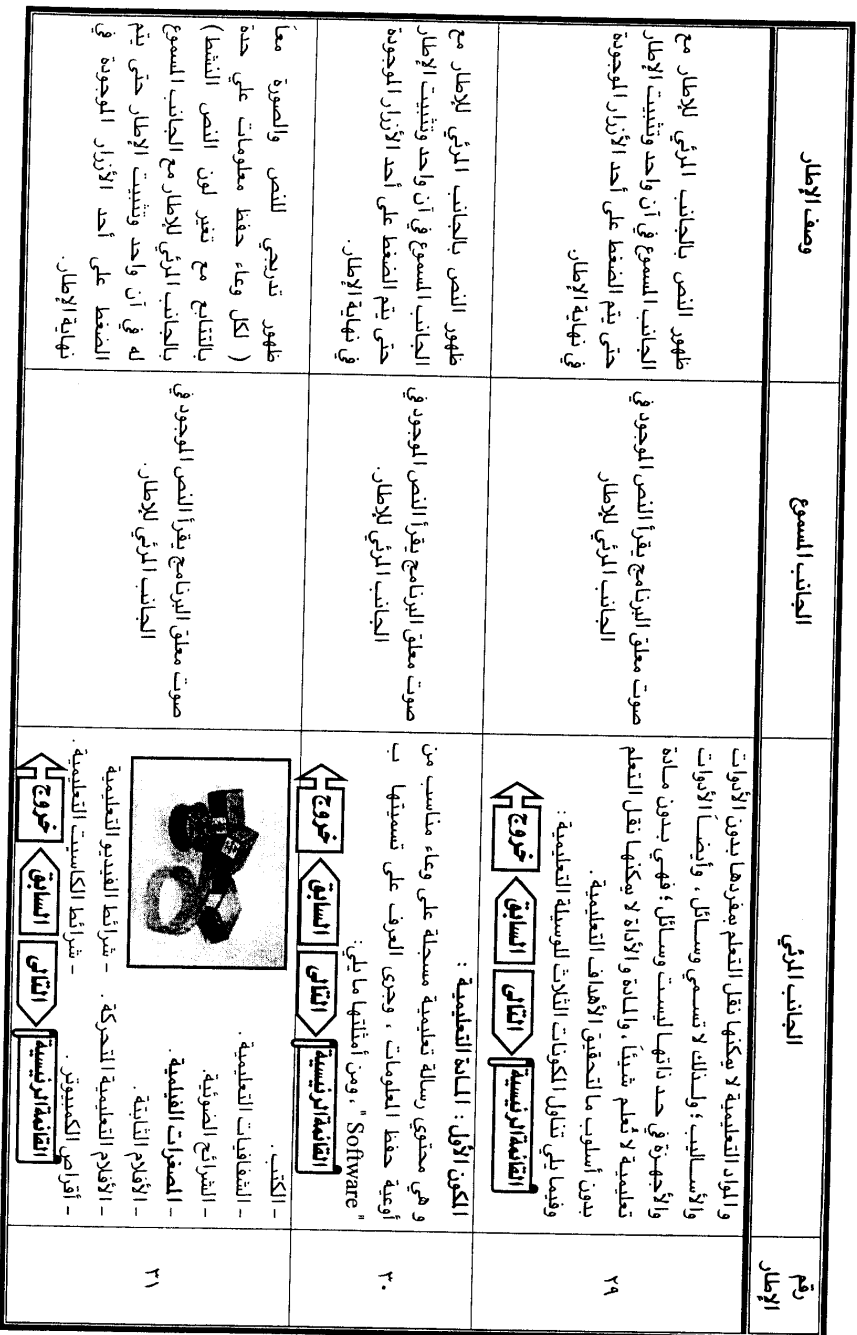 رقم
الإطار
الجانب المرئي
الجانب المسموع
وصف الإطار
٢٩
و المواد التعليمية لا يمكنها نقل التعلم بمفردها بدون الأدوات
والأساليب ؛ ولذلك لا تسمي وسائل ، وأيضاً الأدوات
والأجهزة في حد ذاتها ليست وسائل ؛ فهي بدون مادة
تعليمية لا تُعلم شيئاً ، والمادة و الأداة لا يمكنها نقل التعلم
بدون أسلوب ما لتحقيق الأهداف التعليمية .
وفيما يلي تناول المكونات الثلاث للوسيلة التعليمية :
القائمة الرئيسية
التالى
السابق
خروج
صوت معلق البرنامج يقرأ النص الموجود في
الجانب المرئي للإطار
ظهور النص بالجانب المرئي للإطار مع
الجانب المسموع في آن واحد وتثبيت الإطار
حتى يتم الضغط على أحد الأزرار الموجودة
في نهاية الإطار.
٣٠
المكون الأول : المادة التعليمية :
و هي محتوي رسالة تعليمية مسجلة على وعاء مناسب من
أوعية حفظ المعلومات ، وجرى العرف على تسميتها ب
" Software " ، ومن أمثلتها ما يلي:
القائمة الرئيسية
التالى
السابق
خروج
صوت معلق البرنامج يقرأ النص الموجود في
الجانب المرئي للإطار.
ظهور النص بالجانب المرئي للإطار مع
الجانب المسموع في آن واحد وتثبيت الإطار
حتى يتم الضغط على أحد الأزرار الموجودة
في نهاية الإطار.
٣١
- الكتب .
- الشفافيات التعليمية .
- الشرائح الضوئية.
- المصغرات الفيلمية.
- الأفلام الثابتة .
- الأفلام التعليمية المتحركة . - شرائط الفيديو التعليمية
- أقراص الكمبيوتر . - شرائط الكاسيت التعليمية .
القائمة الرئيسية
التالى
السابق
خروج
صوت معلق البرنامج يقرأ النص الموجود في
الجانب المرئي للإطار.
ظهور تدريجي للنص والصورة معاً
( لكل وعاء حفظ معلومات علي حدة
بالتتابع مع تغير لون النص النشط)
بالجانب المرئي للإطار مع الجانب المسموع
له في آن واحد وتثبيت الإطار حتى يتم
الضغط على أحد الأزرار الموجودة في
نهاية الإطار.